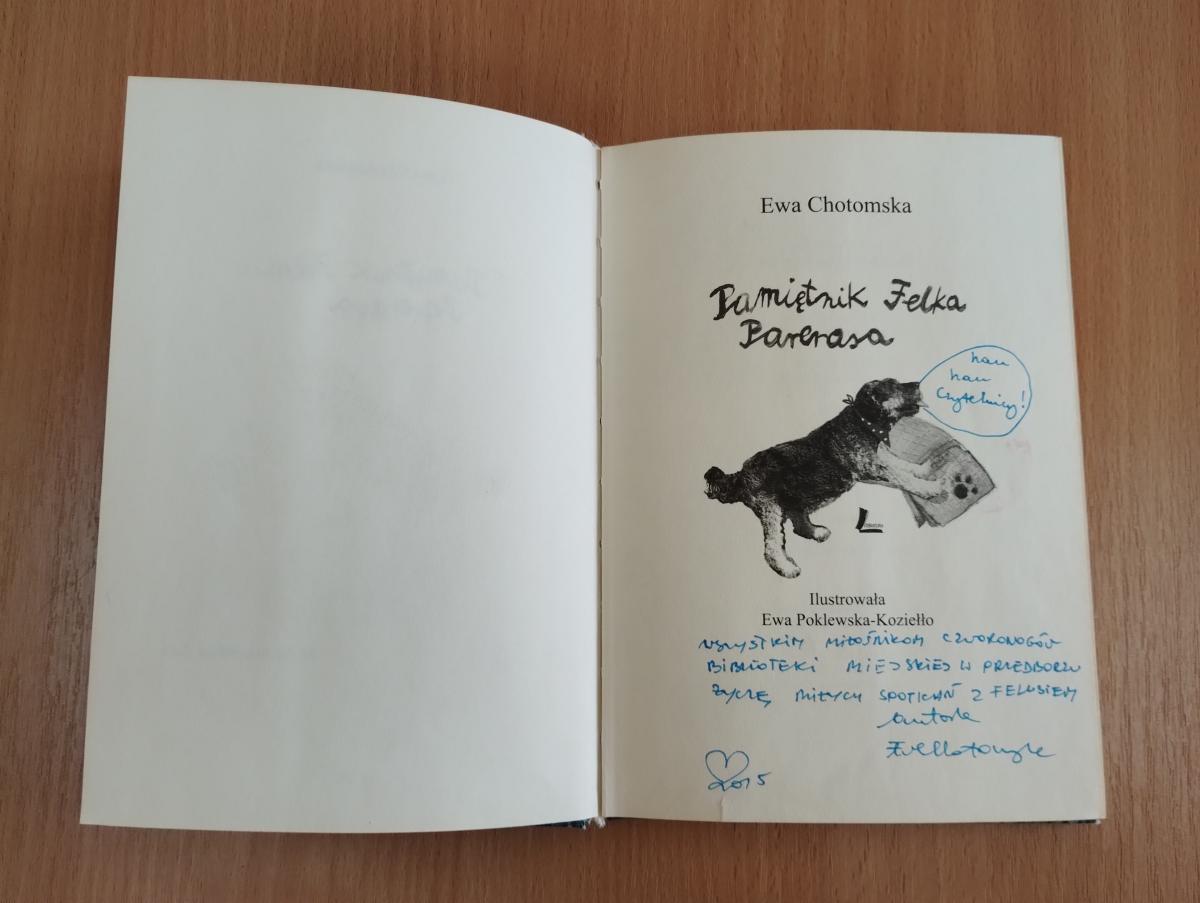 Ewa Chotomska
Pamiętnik Felka
Parerasa
hau
hau
Czytelnicy!
LITERATURA
Ilustrowała
Ewa Poklewska-Koziełło
WSZYSTKIM MIŁOŚNIKOM CZWORONOGÓW
BIBLIOTEKI MIEJSKIEJ W PRZEDBORZU
ŻYCZĘ MIŁYCH SPOTKAŃ Z FELUSIEM
autorka
EwaChotomska
2015